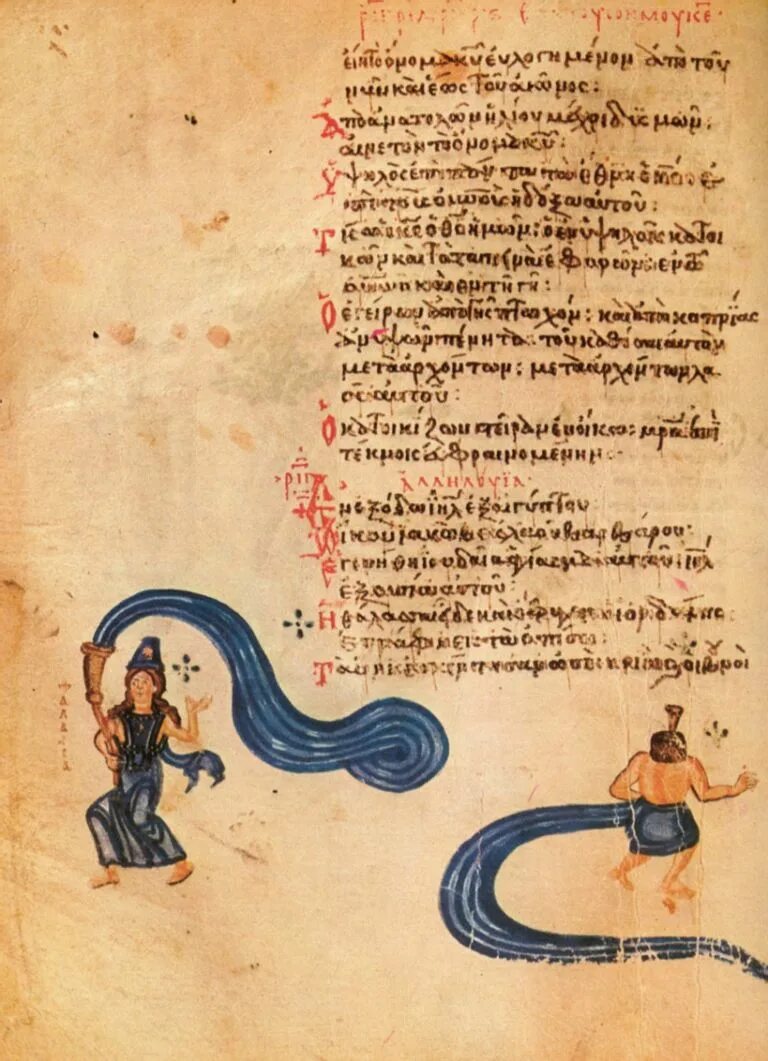 εἴη τὸ ὄνομα κυ εὐλογημένον ἀπὸ τοῦ
νῦν καὶ ἕως τοῦ αἰῶνος:
Ἀπὸ ἀνατολῶν ἡλίου μέχρι δυσμῶν:
αἰνετὸν τὸ ὄνομα κυ:
Ὑψηλὸς ἐπὶ πάντα τὰ ἔθνη ὁ κς ἐ
ἡ δόξα αὐτοῦ:
Τίς ὡς κς ὁ θς ἡμῶν: ὁ ἐν ὑψηλοῖς κατοι
κῶν καὶ τὰ ταπεινὰ ἐφορῶν: ἐν
καὶ ἐν τῇ γῇ:
Ὁ ἐγείρων ἀπὸ γῆς πτωχόν: καὶ ἀπὸ κοπρίας
ἀνυψῶν πένητα: τοῦ καθίσαι αὐτὸν
μετὰ ἀρχόντων: μετὰ ἀρχόντων λα
οῦ αὐτοῦ:
Ὁ κατοικίζων στεῖραν ἐν οἴκω: μρα ἐπὶ
τέκνοις εὐφραινομένην:
ριγ ἀλληλούϊα
ἐν ἐξόδω ιηλ ἐξ αἰγύπτου
οἴκου ἰακὼβ ἐκ λαοῦ βαρβάρου:
Ἐγενήθη ἰουδαία ἁγίασμα αὐτοῦ: ιηλ
ἐξουσία αὐτοῦ:
Ἡ θάλασσα εἶδεν καὶ ἔφυγεν: ὁ ἰορδάνης
ἐστράφη εἰς τὰ ὀπίσω:
Τὰ ὄρη ἐσκίρτησαν ὡσεὶ κριοὶ καὶ οἱ βουνοὶ
θάλασσα